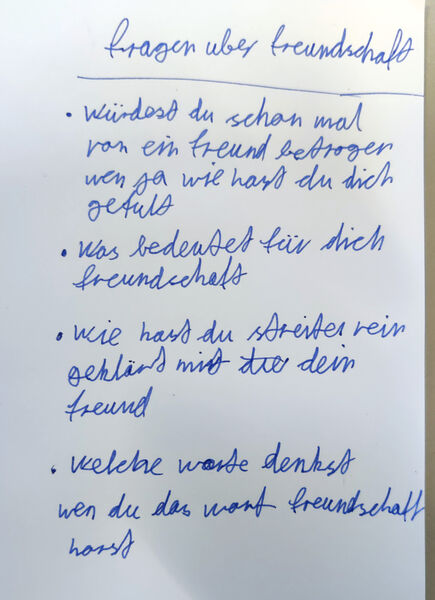 Fragen uber Freundschaft
• Würdest du schon mal
von ein Freund betrogen
wen ja wie hast du dich
gefult
• Was bedeutet für dich
Freundschaft
• Wie hast du streiter rein
geklärt mit dein
Freund
• Welche worte denkst
wen du das wort Freundschaft
horst